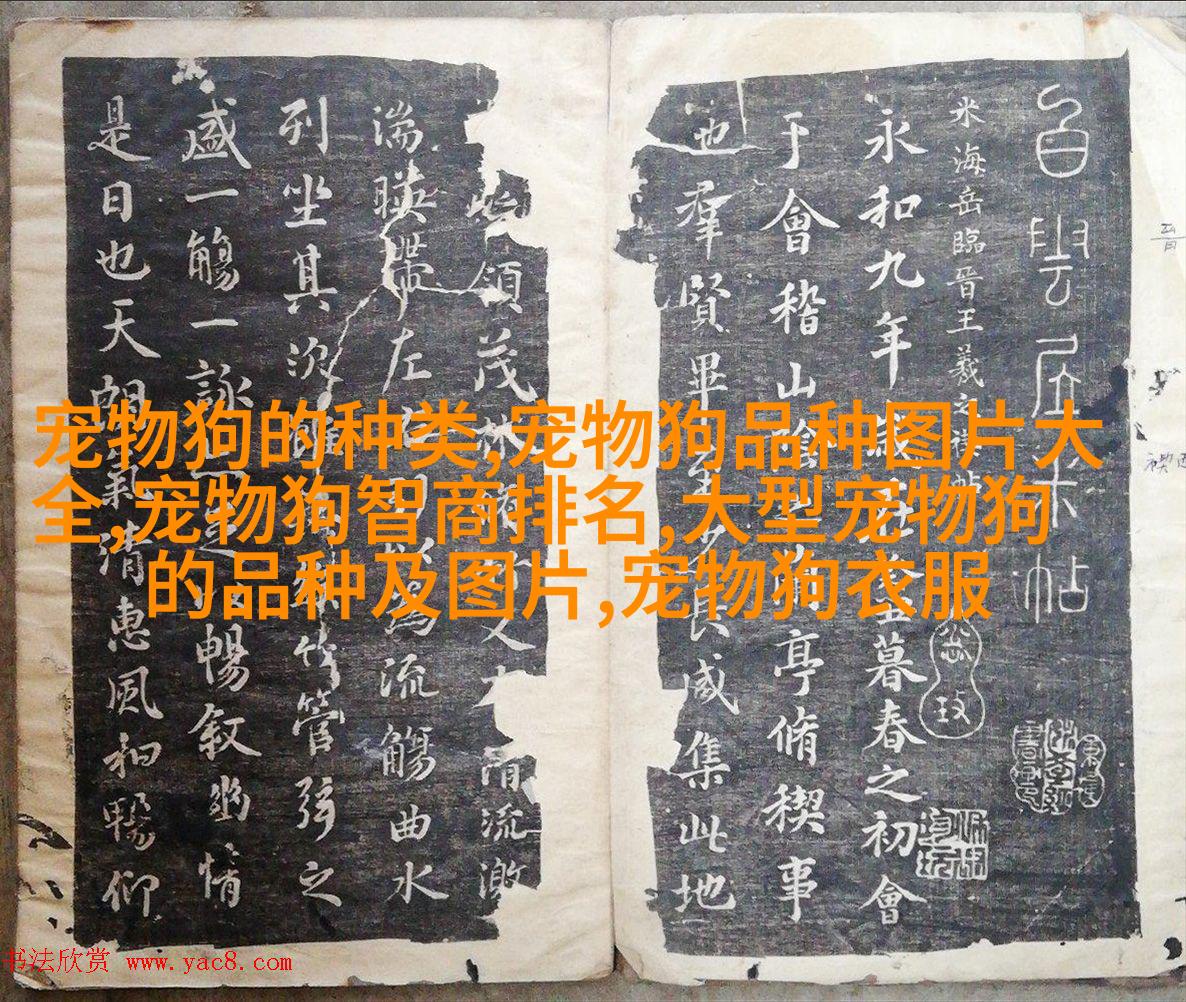 宠物狗的种类,宠物狗品种图片大
全,宠物狗智商排名,大型宠物狗
的品种及图片,宠物狗衣服
白雲居米帖
米海岳臨晉王羲之禊帖
永和九年歲在暮春之初會
于會稽山陰之蘭亭脩禊事
也羣賢畢至少長咸集此地
領茂林又有清流激
湍暎帶左右以為流觴曲水
列坐其次竹管弦之
盛一觴一詠足以暢敘幽情
是日也天朗氣清惠風和暢仰
书法欣赏 www.yac8.com